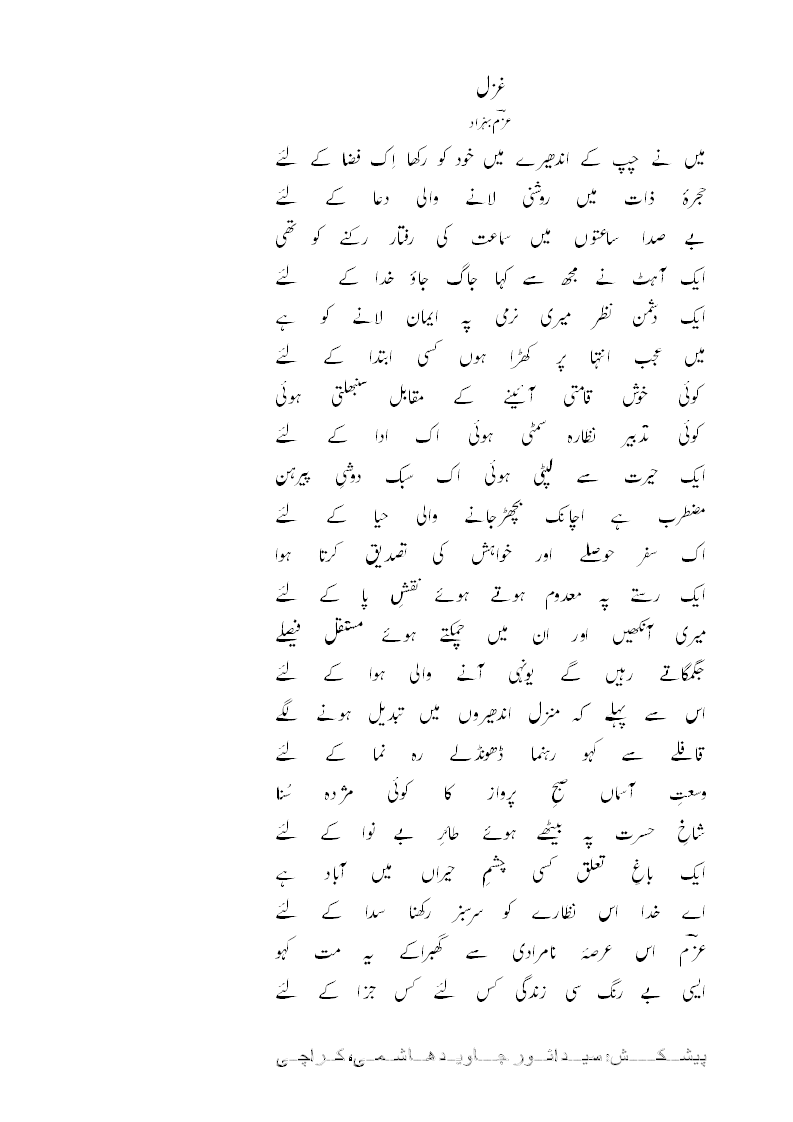 غزل
عزمؔ بہزاد
میں نے چپ کے اندھیرے میں خود کو رکھا اِک فضا کے لئے
حجرۂ ذات میں روشنی لانے والی دعا کے لئے
بے صدا ساعتوں میں ساعت کی رفتار رکنے کو تھی
ایک آہٹ نے مجھ سے کہا جاگ جاؤ خدا کے لئے
ایک دشمن نظر میری نرمی پہ ایمان لانے کو ہے
میں عجب انتہا پر کھڑا ہوں کسی ابتدا کے لئے
کوئی خوش قامتی آئینے کے مقابل سنبھلتی ہوئی
کوئی تدبیر نظارہ سمٹی ہوئی اک ادا کے لئے
ایک حیرت سے لپٹی ہوئی اک سبک دوشیِ پیرہن
مضطرب ہے اچانک بچھڑجانے والی حیا کے لئے
اک سفر حوصلے اور خواہش کی تصدیق کرتا ہوا
ایک رستے پہ معدوم ہوتے ہوئے نقشِ پا کے لئے
میری آنکھیں اور ان میں چمکتے ہوئے مستقل فیصلے
جگمگاتے رہیں گے یونہی آنے والی ہوا کے لئے
اس سے پہلے کہ منزل اندھیروں میں تبدیل ہونے لگے
قافلے سے کہو رہنما ڈھونڈلے رہ نما کے لئے
وسعتِ آسماں صبحِ پرواز کا کوئی مژدہ سُنا
شاخِ حسرت پہ بیٹھے ہوئے طائرِ بے نوا کے لئے
ایک باغِ تعلق کسی چشمِ حیراں میں آباد ہے
اے خدا اس نظارے کو سرسبز رکھنا سدا کے لئے
عزمؔ اس عرصۂ نامرادی سے گھبراکے یہ مت کہو
ایسی بے رنگ سی زندگی کس لئے کس جزا کے لئے
پیشکش: سید انور جاوید ھاشمی، کراچی